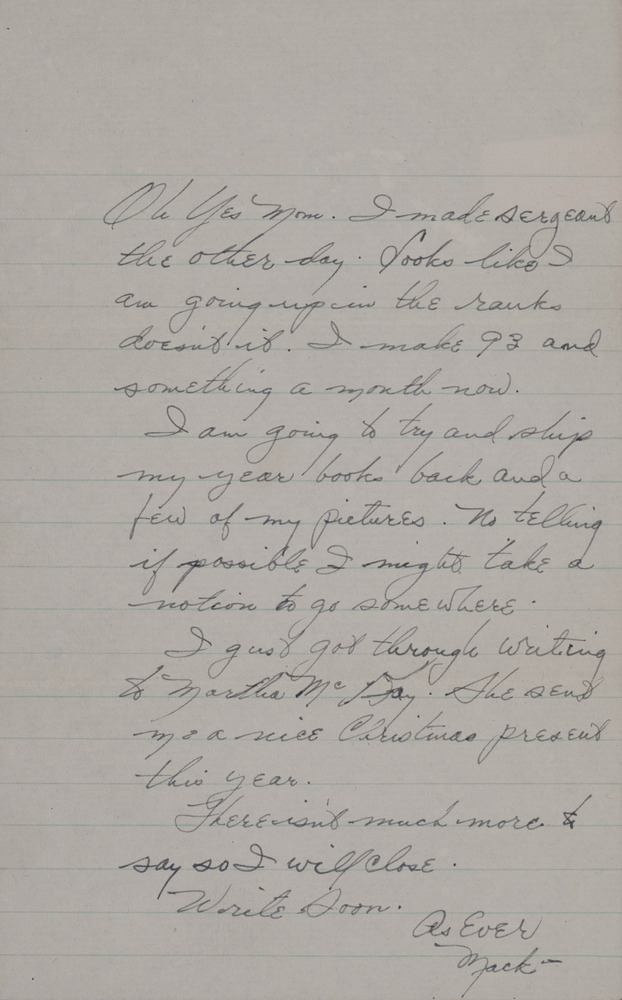 Oh Yes Mom. I made sergeant
the other day. Looks like I
am going up in the ranks
doesnt it. I make 93 and
something a month now.
I am going to try and ship
my year books back and a
few of my pictures. No telling
if possible I might take a
notion to go somewhere.
I gust got through writing
to Martha Mc Kay. She sent
me a nice Christmas present
this year.
There isnt much more to
say so I will close.
Write Soon.
As Ever
Mack-